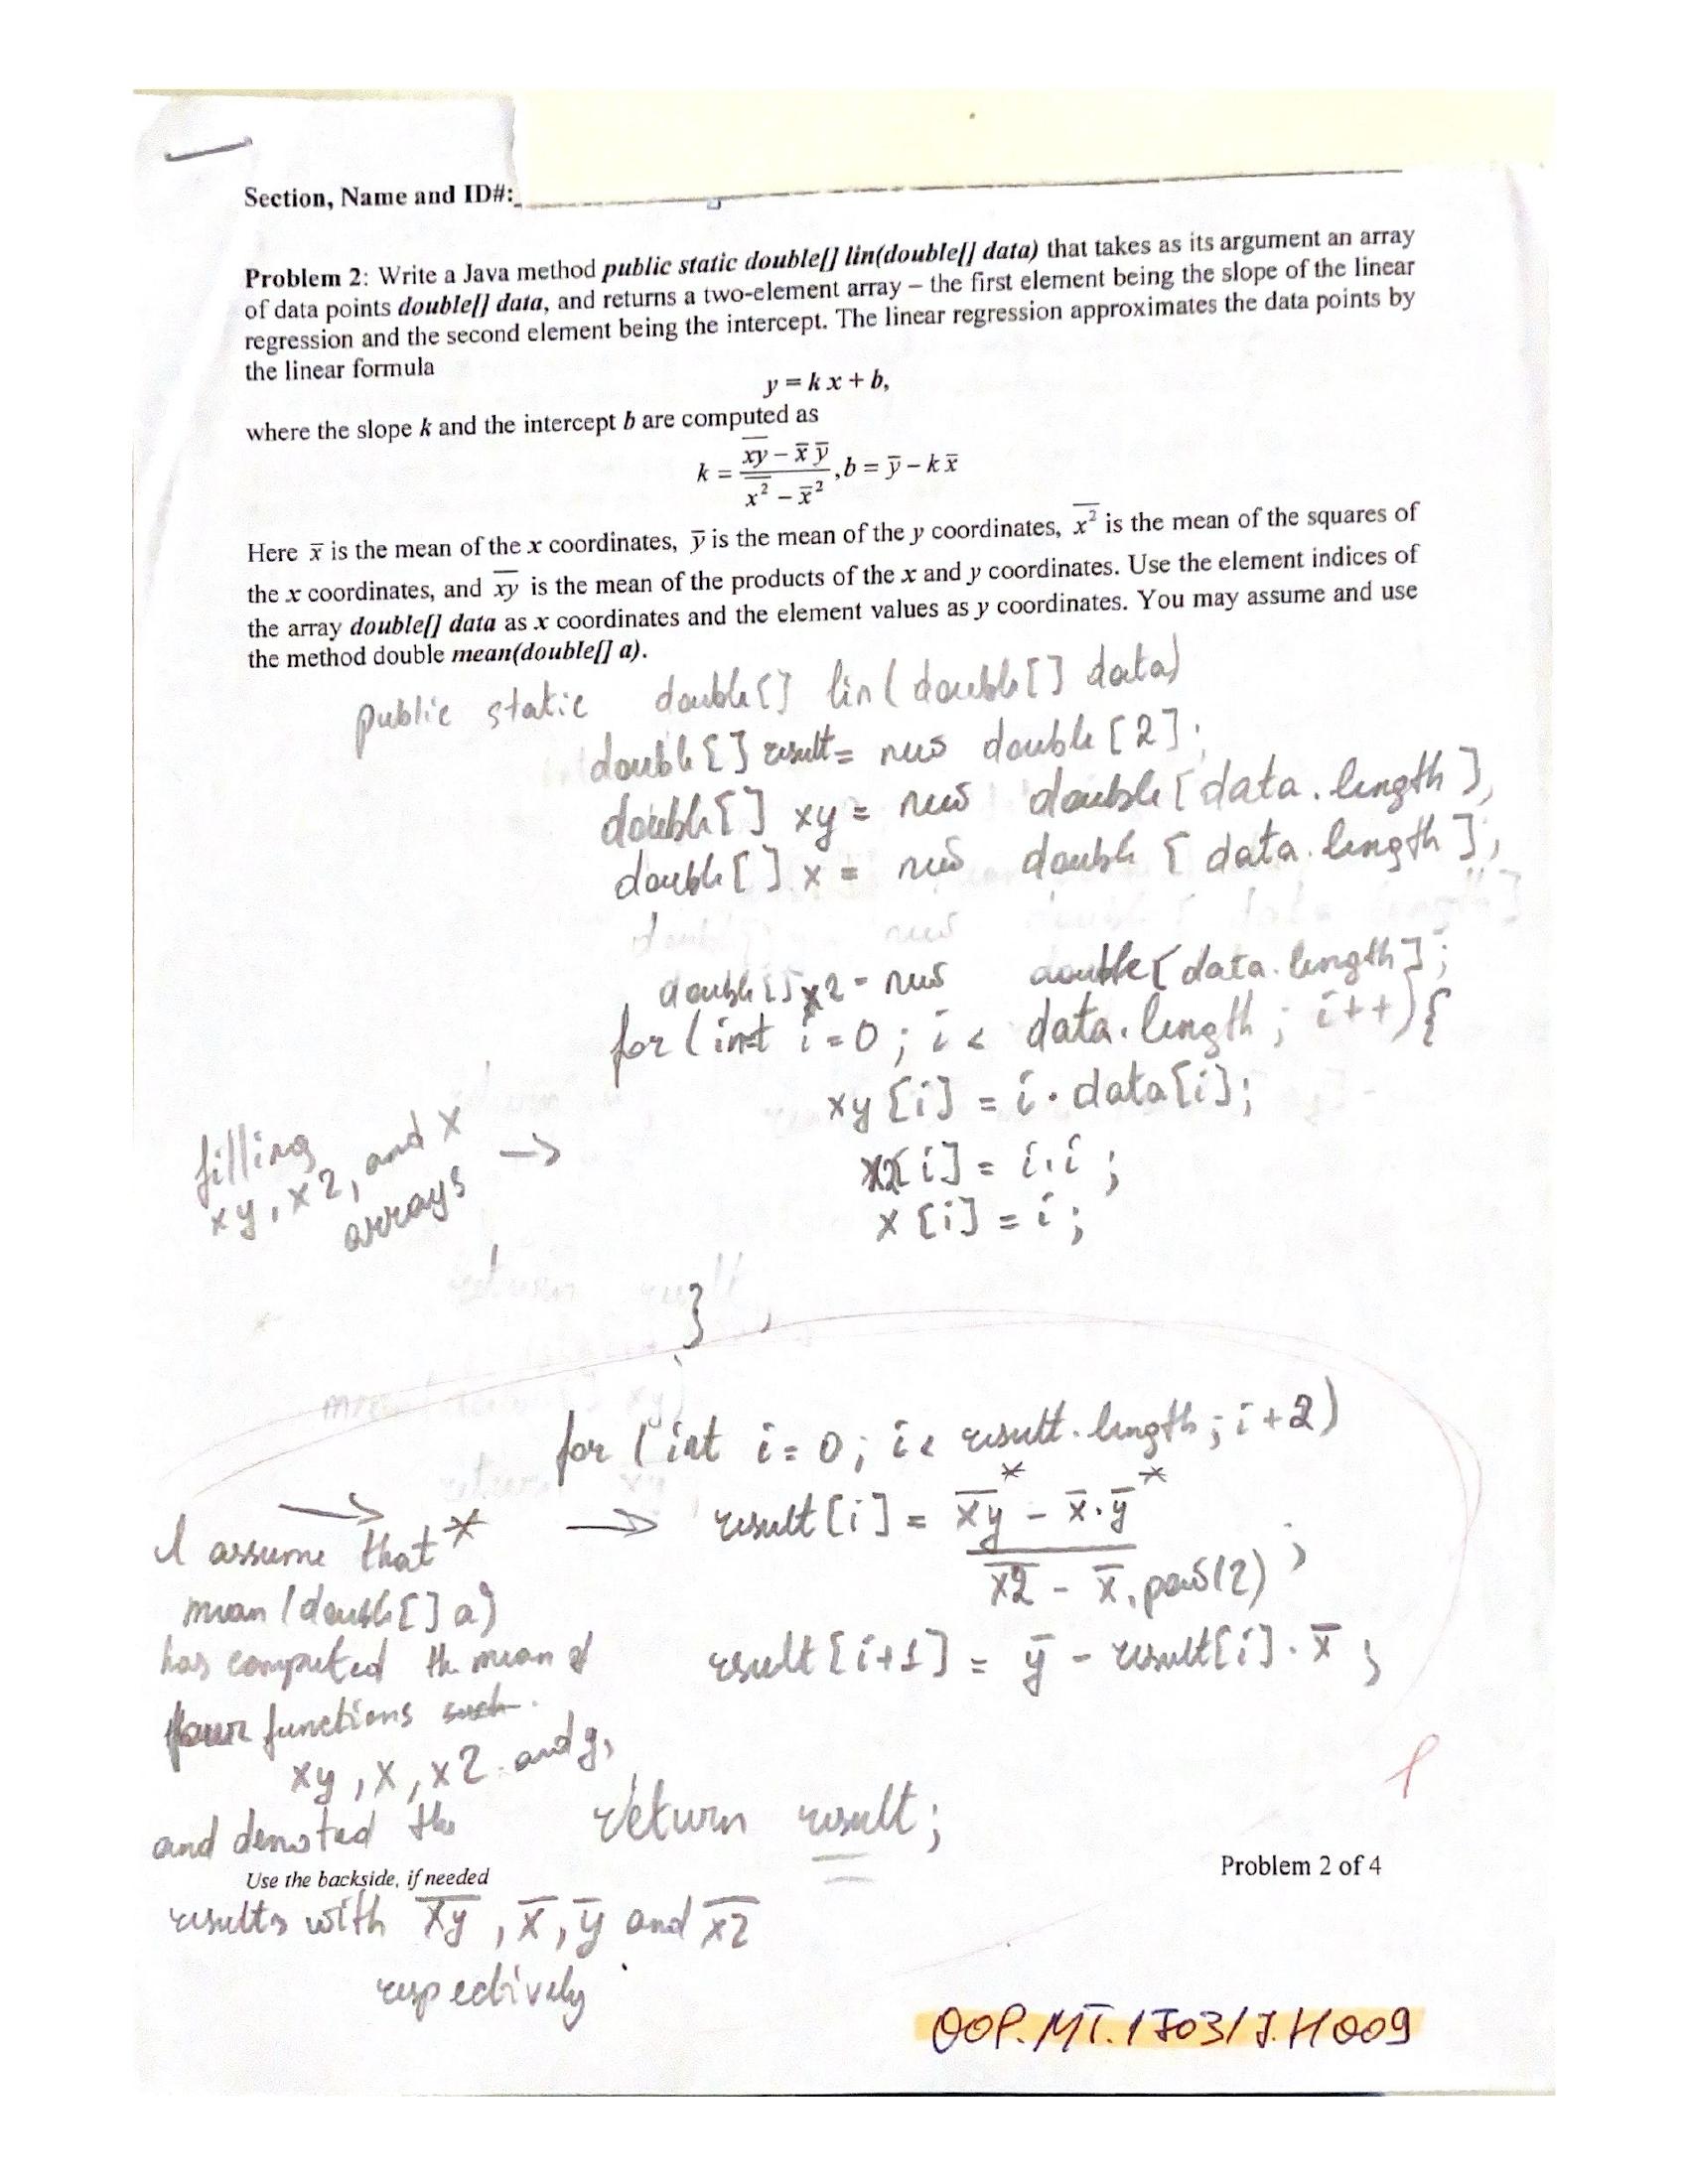 Section, Name and ID#:
Problem 2: Write a Java method public static double[] lin(double[] data) that takes as its argument an array
of data points double[] data, and returns a two-element array – the first element being the slope of the linear
regression and the second element being the intercept. The linear regression approximates the data points by
the linear formula
y = k x + b,
where the slope k and the intercept b are computed as
k = (x̅y̅ – x̅ y̅) / (x̅²̅ – x̅²) , b = y̅ – k x̅
Here x̅ is the mean of the x coordinates, y̅ is the mean of the y coordinates, x̅²̅ is the mean of the squares of
the x coordinates, and x̅y̅ is the mean of the products of the x and y coordinates. Use the element indices of
the array double[] data as x coordinates and the element values as y coordinates. You may assume and use
the method double mean(double[] a).
public static double[] lin(double[] data)
double[] result = new double[2];
double[] xy = new double[data.length],
double[] x = new double[data.length];
double[] x2 = new double[data.length];
for (int i=0; i < data.length; i++){
xy[i] = i · data[i];
x2[i] = i·i;
x[i] = i;
filling
xy, x2, and x
arrays →
}
for (int i=0; i< result.length; i+2)
→ result[i] = x̅y̅* – x̅·y̅* / x̅2̅ – x̅.pow(2) ;
result[i+1] = y̅ – result[i]·x̅;
→
I assume that *
mean(double[] a)
has computed the mean of
four functions
xy, x, x2 and y,
and denoted the
return result;
Use the backside, if needed
Problem 2 of 4
results with x̅y̅, x̅, y̅ and x̅2̅
respectively.
OOP.MT.1703/J.H009